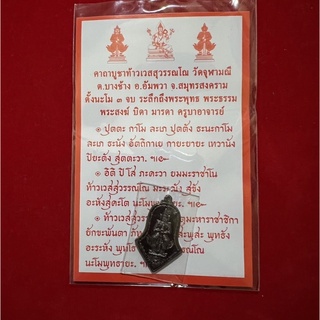 คาถาบูชาท้าวเวสสุวรรณโณ วัดจุฬามณี
ต.บางช้าง อ.อัมพวา จ.สมุทรสงคราม
ตั้งนะโม ๓ จบ ระลึกถึงพระพุทธ พระธรรม
พระสงฆ์ บิดา มารดา ครูบาอาจารย์
๑ ปุตตะ กาโม ละเภ ปุตตัง ธะนะกาโม
ละเภ ธะนัง อัตถิกาเย กายะยายะ เทวานัง
ปิยะตัง สุตตะวา.
๑ อิติ ปิ โส ภะคะวา ยมมะราชาโน
ท้าวเวสสุวรรณโณ สุขัง
อะหังสุคะโต นะโม
๑ ท้าวเวสสุวรรณ มะหาราชาชิกา
ยักขะพันตา พุทธัง
อะระหัง พุทโธ
นะโมพุทธายะ.